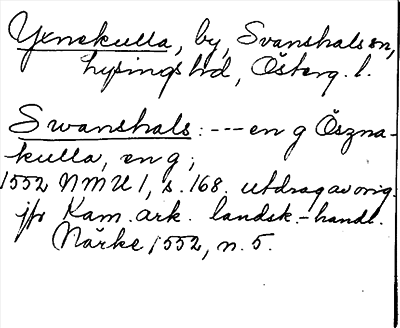 Yxnekulla, by, Svanshals sn,
Lysings hd, Österg. l.
Swanshals: --- en g Öszna-
kulla, en g;
1552 NMU 1, s. 168. utdrag av orig.
jfr Kam. ark. landsk.-handl.
Närke 1552, n. 5.